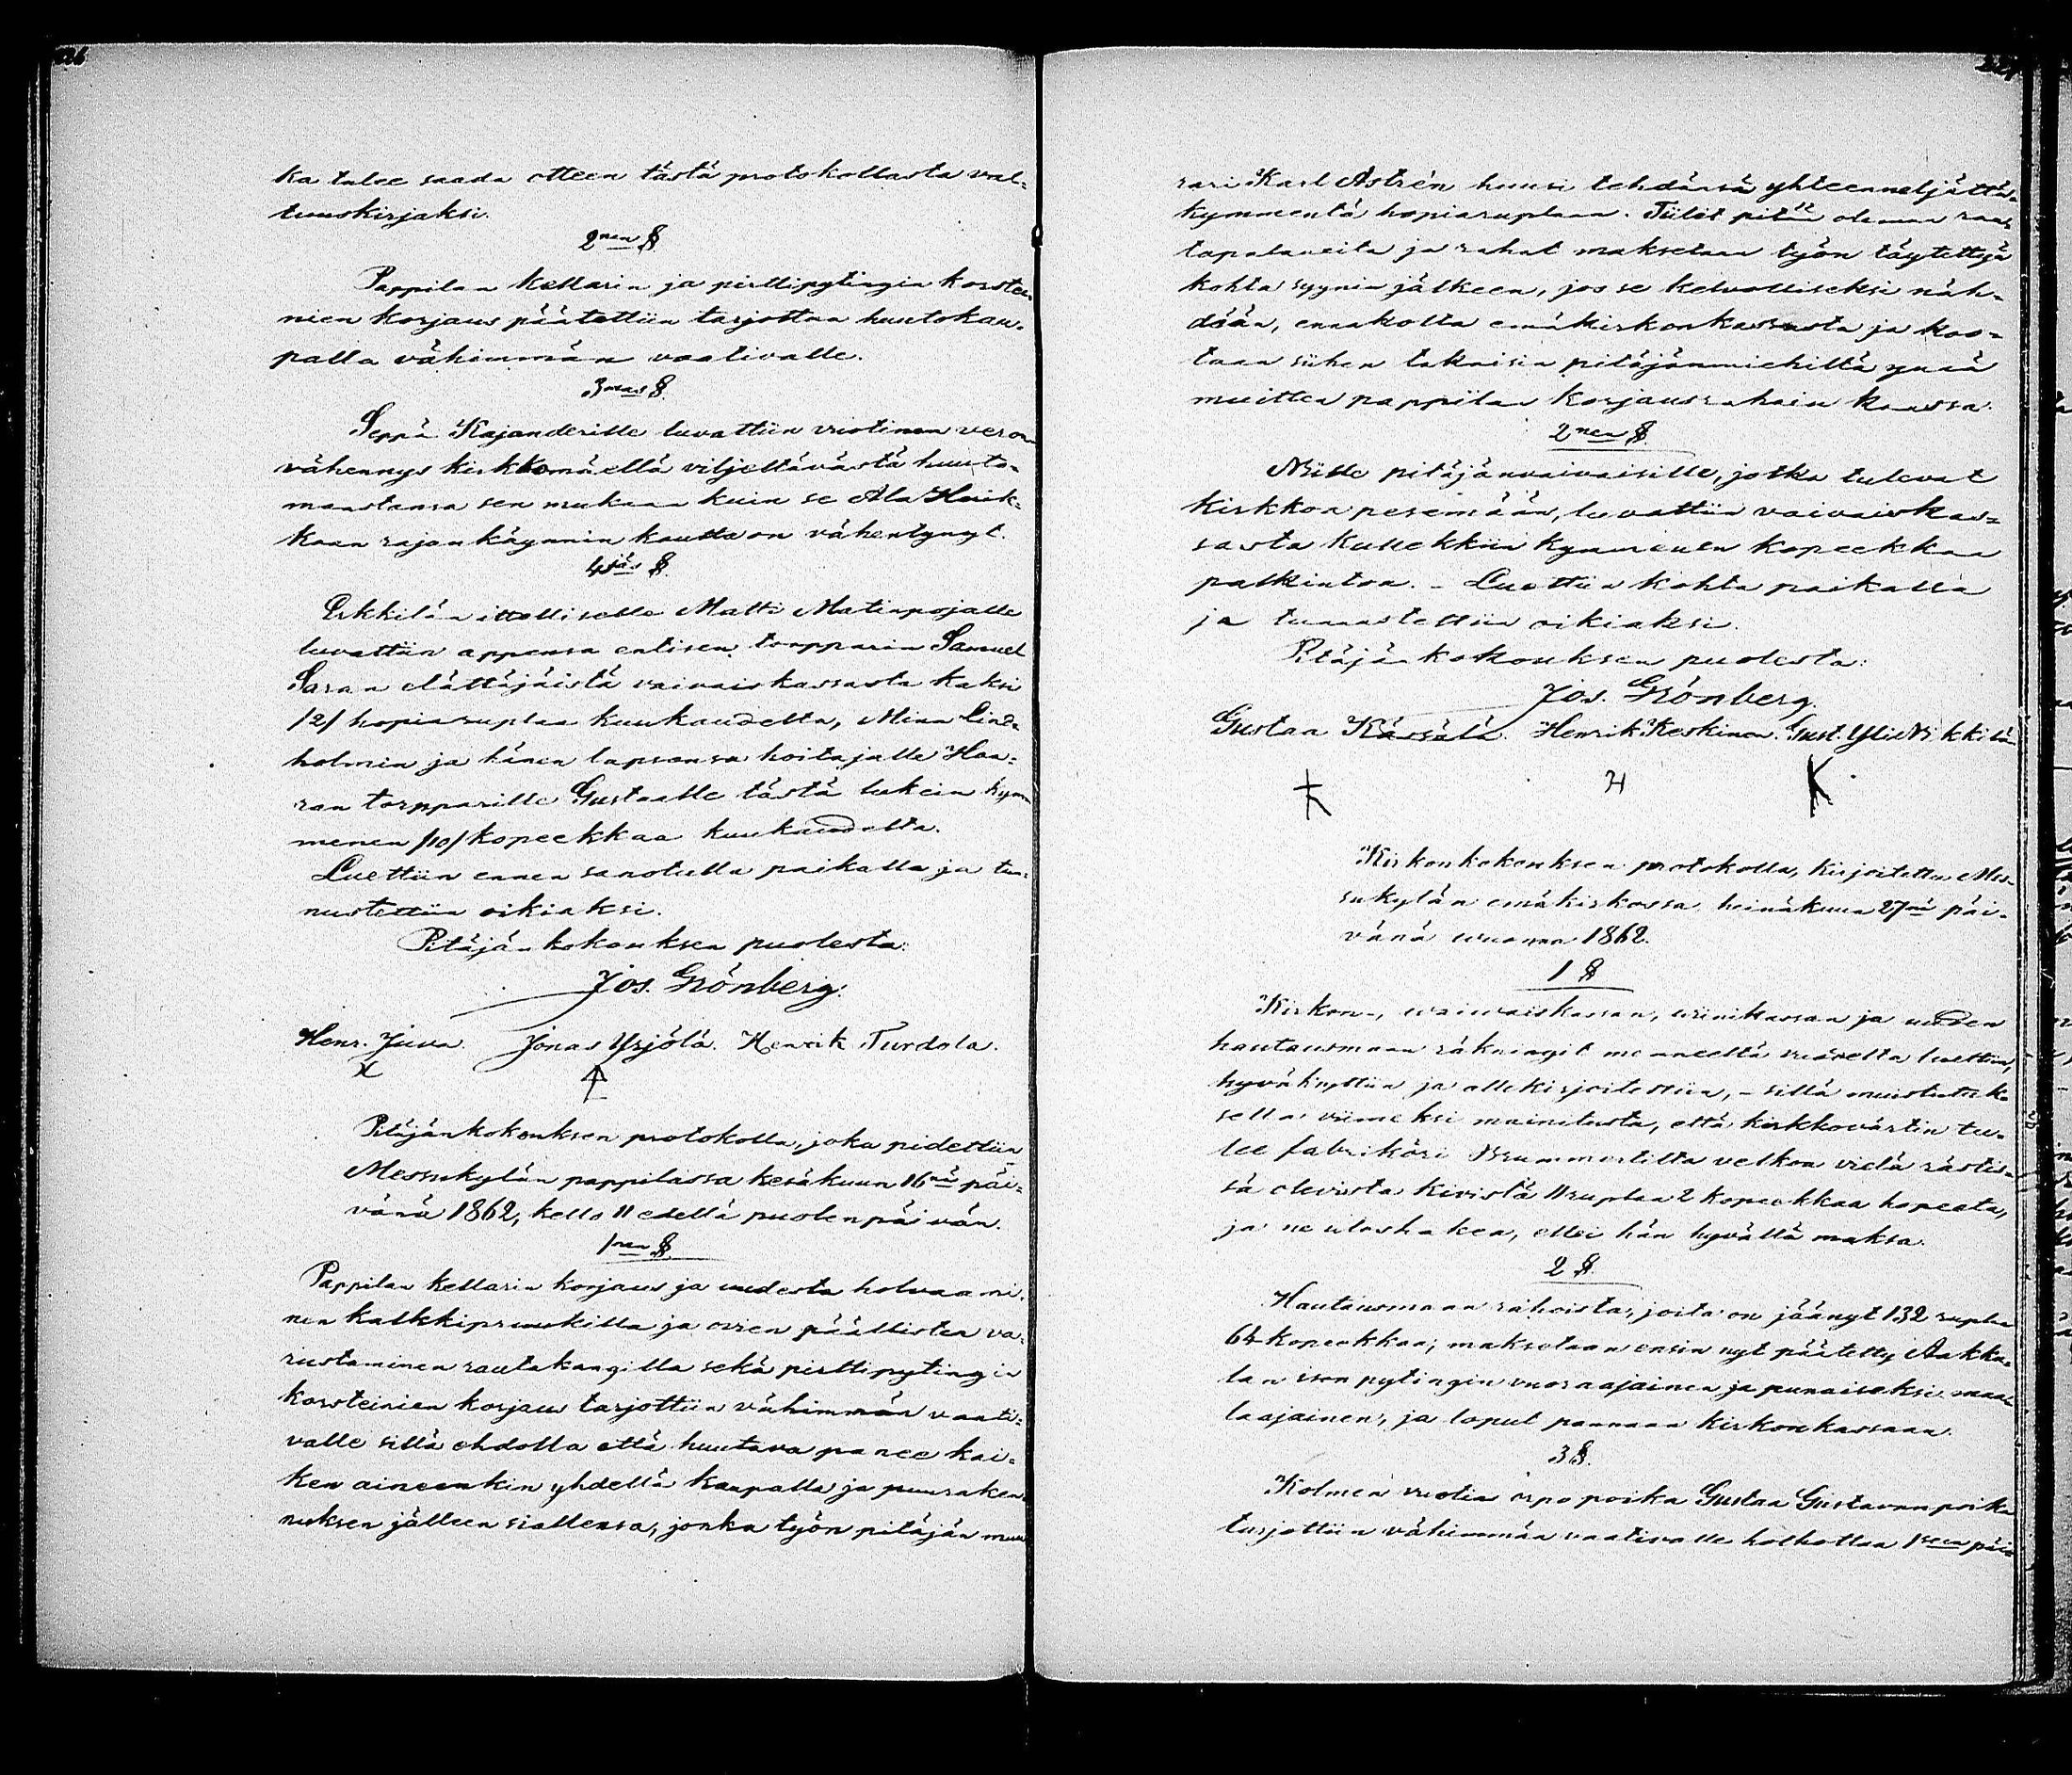 ka tulee saada otteen tästä protokollasta val-
tuuskirjaksi.
2nen §.
Pappilan kellarin ja pirttipytingin korstei-
nien korjaus päätettiin tarjottaa huutokau-
palla vähimmän vaativalle.
3mas §.
Seppä Kajanderille luvattiin vuotinen veron
vähennys kirkkomäellä viljeltävästä huuto-
maastansa sen mukaan kuin se Ala Heik-
kaan rajankäynnin kautta on vähentynyt.
4jäs §.
Erkkilän itselliselle Matti Matinpojalle
luvattiin appensa entisen torpparin Samuel
Saran elättäjäistä vaivaiskassasta kaksi
/2/ hopiaruplaa kuukaudelta, Miina Lind-
holmin ja hänen lapsensa hoitajalle Haa-
ran torpparille Gustaalle tästä lukein kym-
menen /10/ kopeekkaa kuukaudelta.
Luettiin ennen sanotulla paikalla ja tun-
nustettiin oikiaksi.
Pitäjänkokouksen puolesta:
Jos. Grönberg.
Henr. Juva. Jonas Yrjölä. Henrik Turdola.
Pitäjänkokouksen protokolla, joka pidettiin
Messukylän pappilassa kesäkuun 16nä päi-
vänä 1862, kello 11 edellä puolenpäivän.
1nen §.
Pappilan kellarin korjaus ja uudesta holvaami-
nen kalkkipruukilla ja ovien päällisten va-
rustaminen rautakangilla sekä pirttipytingin
korsteinien korjaus tarjottiin vähimmän vaati-
valle sillä ehdolla että huutava panee kai-
ken aineenkin yhdellä kaupalla ja puuraken-
nuksen jälleen siallensa, jonka työn pitäjän muu
rari Karl Astrén huusi tehdäksä yhteenneljättä-
kymmentä hopiaruplaan. Tiilit pitää oleman raas
tapalaneita ja rahat maksetaan työn täytettyä
kohta syynin jälkeen, jos se kelvolliseksi näh-
dään, ennakolta emäkirkonkassasta ja koo-
taan siihen takaisin pitäjänmiehiltä ynnä
muitten pappilan korjausrahain kanssa.
2nen §
Niille pitäjänvaivaisille, jotka tulevat
kirkkoa pesemään, luvattiin vaivaiskas-
sasta kullekkiin kymmenen kopeekkaa
palkintoa. - Luettiin kohta paikalla
ja tunnustettiin oikiaksi.
Pitäjänkokouksen puolesta:
Jos. Grönberg.
Gustaa Kässälä. Henrik Keskinen. Gust. Yli Nikkilä
H K
Kirkonkokouksen protokolla, kirjoitettu Mes-
sukylän emäkirkossa heinäkuun 27nä päi-
vänä vuonna 1862.
1 §
Kirkon-, vaivaiskassan, viinikassan ja uuden
hautausmaan räkningit menneeltä vuodelta luettiin,
hyväksyttiin ja allekirjoitettiin, - sillä muistutuk-
sella viimeksi mainitusta, että kirkkovärtin tu-
lee fabriköri Brummertilta velkoa vielä rästis-
sä olevista kivistä 11 ruplaa 2 kopeekkaa hopeata,
ja ne uloshakea, ellei hän hyvällä maksa.
2 §.
Hautausmaan rahoista, joita on jäänyt 132 ruplaa
64 kopeekkaa, maksetaan ensin nyt päätetty Aakku-
lan ison pytingin vuoraajainen ja punaiseksi maa-
laajainen, ja loput pannaan kirkonkassaan.
3 §.
Kolmen vuotia orpopoika Gustaa Gustavanpoika
tarjottiin vähimmän vaativalle holhottaa 1seen päiv